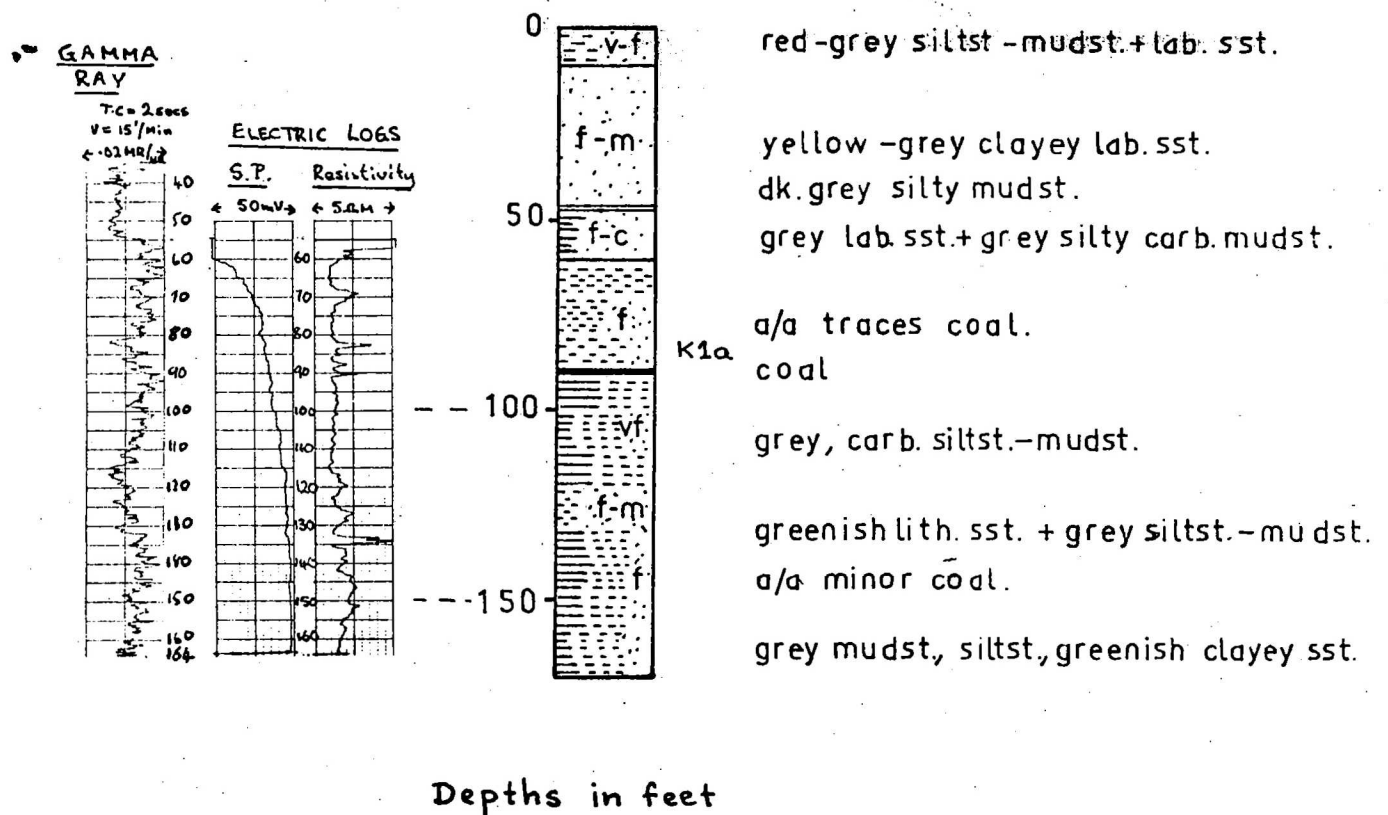 GAMMA
RAY
T.C = 2 secs
V = 15'/Min
ELECTRIC LOGS
S.P.
Resistivity
← 50mV →
← 5ΩM →
40
50
60
70
80
90
100
110
120
130
140
150
160
164
60
70
80
90
100
110
120
130
140
150
160
0
50
100
150
v-f
f-m
f-c
f
vf
f-m
f
K1a
red-grey siltst-mudst.+lab. sst.
yellow-grey clayey lab. sst.
dk. grey silty mudst.
grey lab. sst.+ grey silty carb. mudst.
a/a traces coal.
coal
grey, carb. siltst.-mudst.
greenish lith. sst. + grey siltst.-mudst.
a/a minor coal.
grey mudst., siltst., greenish clayey sst.
Depths in feet